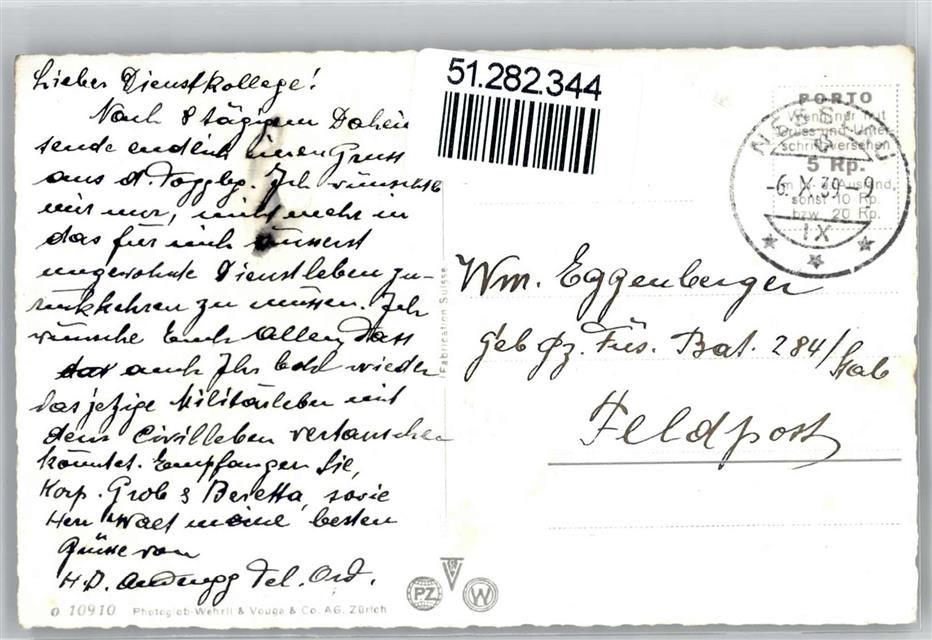 Lieber Dienstkollege!
Nach 8 tägigem Dahein
sende endlich einen Gruss
aus d. Toggbg. Ich wünschte
mir nur, nicht mehr in
das für mich äusserst
ungewohnte Dienstleben zu-
rückkehren zu müssen. Ich
wünsche Euch allen, dass
auch Ihr bald wieder
das jetzige Militärleben mit
dem Civilleben vertauschen
könntet. Empfangen Sie,
Korp. Grob & Beretta, sowie
Herr meine besten
Grüsse von
H.D. Anderegg Tel. Ord.
O 10910 Photoglob-Wehrli & Vouga & Co. AG. Zürich
Fabrication Suisse
PZ
W
51.282.344
PORTO
Wenn nur mit
Gruss und Unter-
schrift versehen
5 Rp.
sonst 10 Rp.
bzw. 20 Rp.
-6.X.39-9
IX
Wm. Eggenberger
Geb Gz. Füs. Bat. 284/Stab
Feldpost